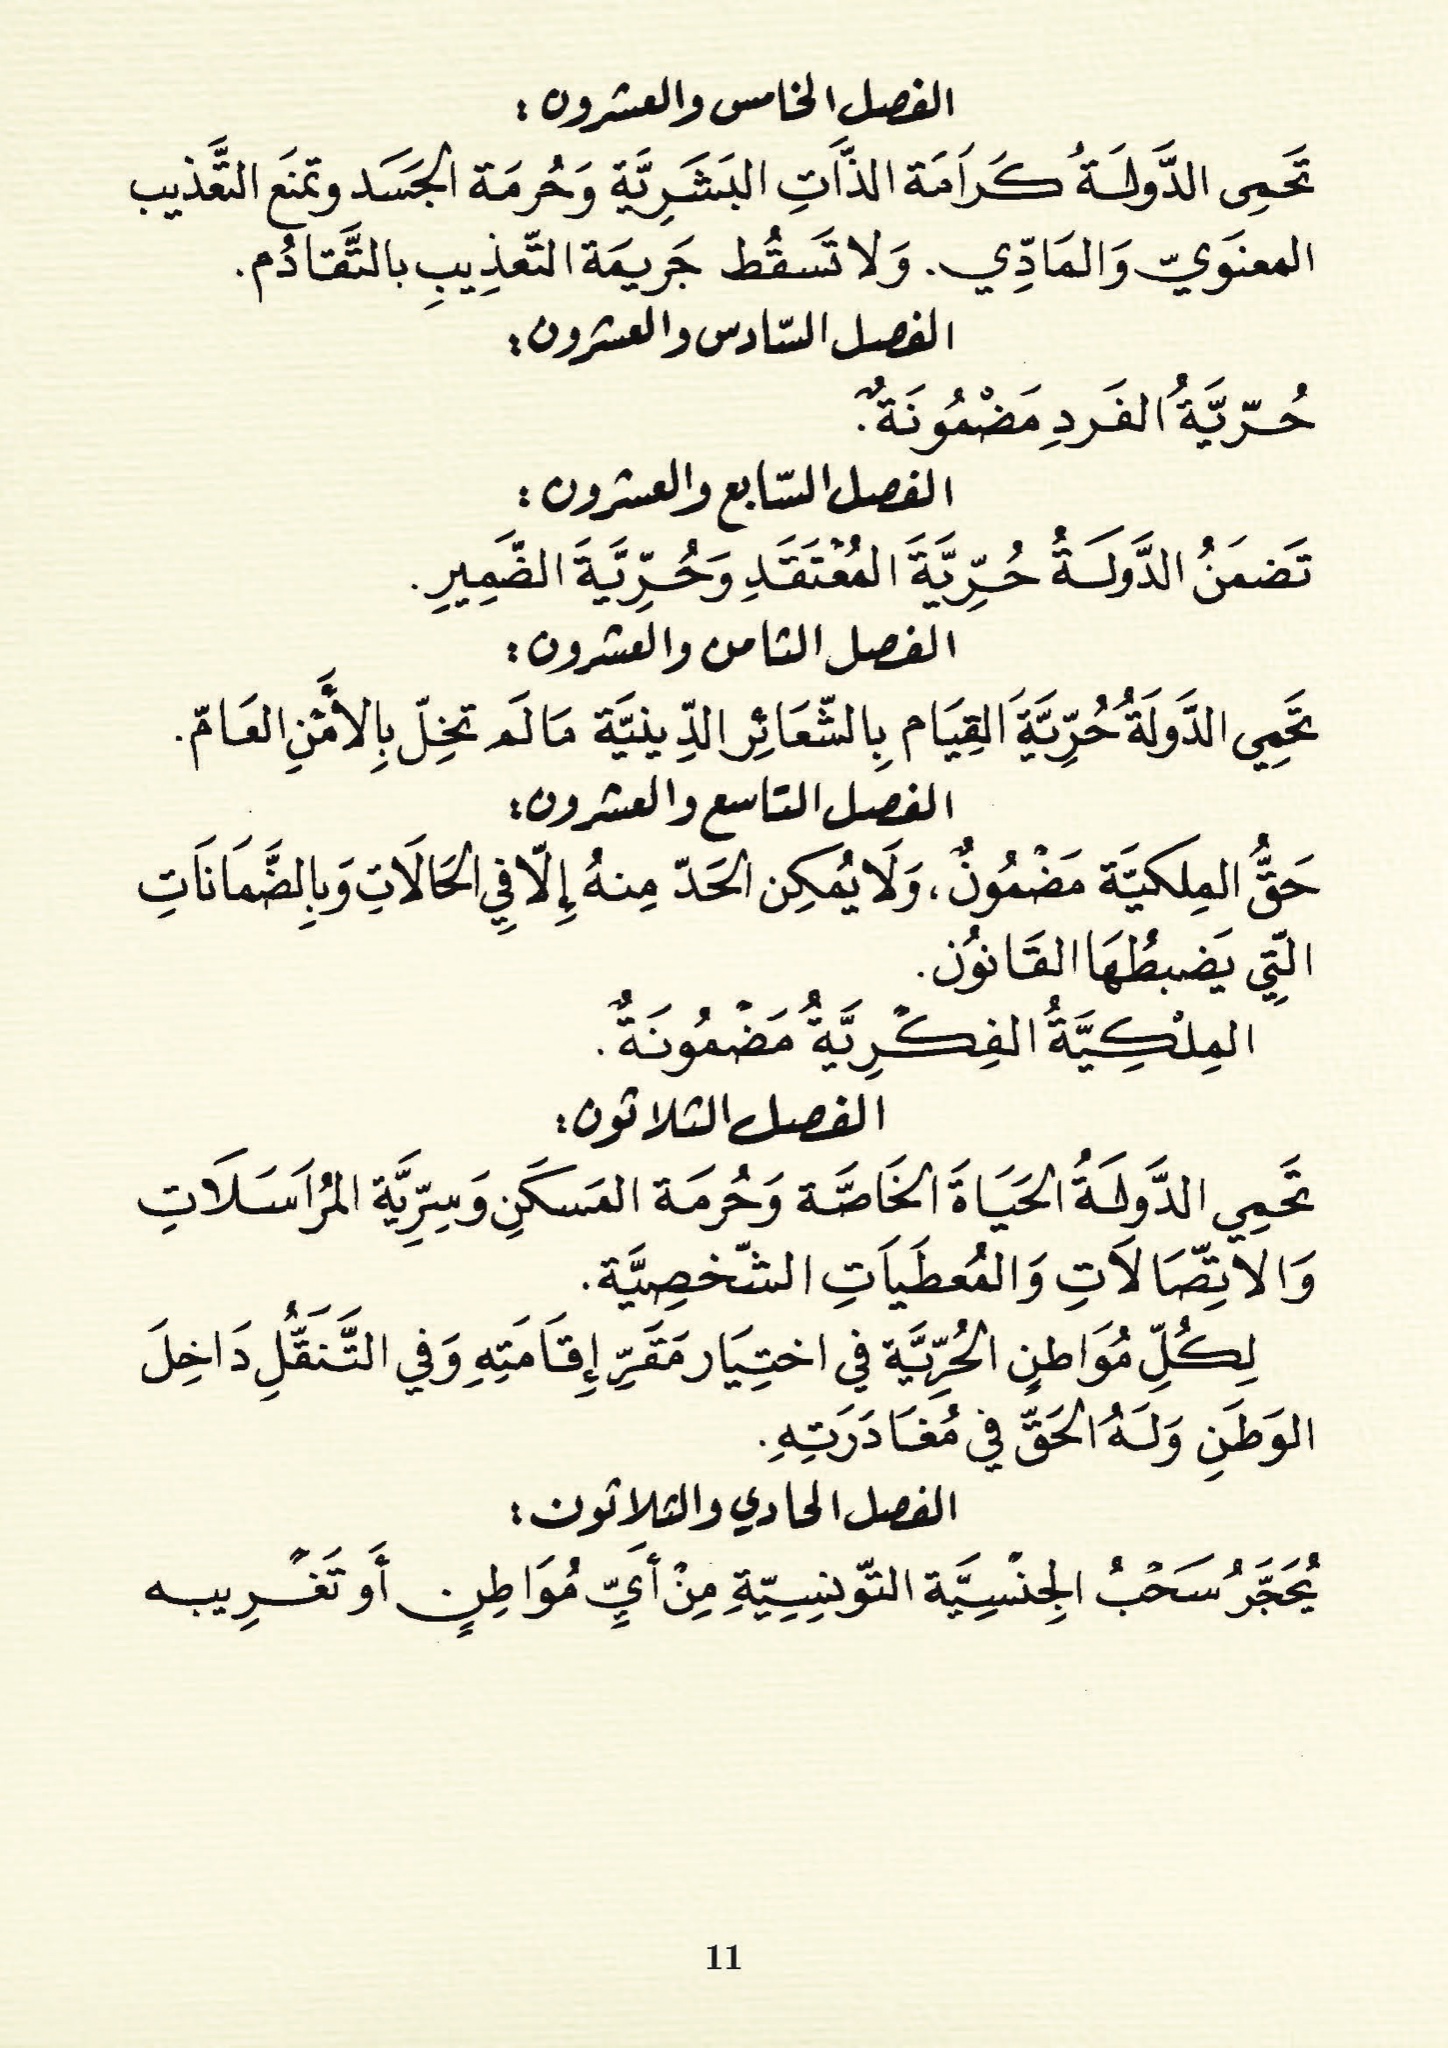 الفصل الخامس والعشرون :
تَحمِى الدَّولَةُ كَرَامَة الذَّاتِ البَشَرِيَّة وَحُرمَة الجَسَد وتمنَع التَّعذيب
المعنَوَيّ وَالمَادِّي. وَلا تَسقُط جَرِيمَة التّعذِيبِ بالتَّقادُم.
الفصل السّادس والعشرون :
حُرّيَّةُ الفَردِ مَضْمُونَةٌ.
الفصل السّابع والعشرون :
تَضمَنُ الدَّولَةُ حُرِّيَّةَ المُعْتَقَدِ وَحُرِّيَّةَ الضَّمِيرِ.
الفصل الثامن والعشرون :
تَحَمِي الدَّولَةُ حُرِّيَّةَ القِيَام بِالشّعَائِر الدِّينِيَّة مَا لَم تخِلّ بِالأَمْنِ العَامّ.
الفصل التاسع والعشرون :
حَقُّ المِلكيَّة مَضْمُونٌ، وَلَا يُمكِن الحَدّ مِنهُ إِلّا فِي الحَالَاتِ وَبِالضَّمَانَاتِ
الّتِي يَضبطُهَا القَانوُن.
المِلْكِيَّةُ الفِكْرِيَّةُ مَضْمُونَةٌ.
الفصل الثلاثون :
تَحَمِي الدَّولَةُ الحَيَاةَ الخَاصَّة وَحُرمَة المَسكَنِ وَسِرِّيَّة المُرَاسَلَاتِ
وَالاتِصّالَاتِ وَالمُعطَيَاتِ الشّخصِيَّة.
لِكُلِّ مُوَاطنٍ الحُرِّيَّة في اختِيَار مَقَرِّ إِقَامَتِهِ وَفي التَّنَقُّلِ دَاخِلَ
الوَطَنِ وَلَهُ الحَقّ في مُغَادَرَتِهِ.
الفصل الحادي والثلاثون :
يُحَجَّرُ سَحْبُ الجِنْسِيَّة التّونِسِيّةِ مِنْ أَيِّ مُوَاطِنٍ أَو تَغْرِيبه
11